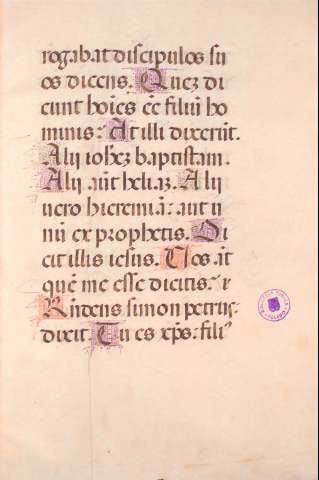 rogabat discipulos su
os dicens. Quez di
cunt hoi͞es e͞e filiu͞ ho
minis: At illi dixeru͞t.
Alij ioh͞ez baptistam.
Alij au͞t heliaz. Alij
uero hieremia͞: aut u
nu͞ ex prophetis. Di
cit illis iesus. Uos a͞t
que͞ me esse dicitis: r
R͞ndens simon petrus:
dixit. Tu es xp͞s: fili⁹